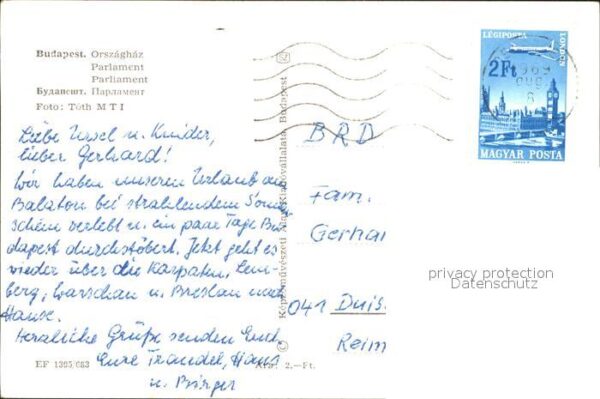 Budapest. Országház
Parlament
Parliament
Будапешт. Парламент
Foto: Tóth MTI
Liebe Ursel u. Kinder,
lieber Gerhard!
Wir haben unseren Urlaub am
Balaton bei strahlendem Sonnen-
schein verlebt u. ein paar Tage Bu-
dapest durchstöbert. Jetzt geht es
wieder über die Karpaten, Lem-
berg, Warschau u. Breslau nach
Hause.
Herzliche Grüße senden Euch
Eure Traudel, Hans
u. Birger
EF 1395/683
Ára: 2.–Ft.
© Képzőművészeti Alap Kiadóvállalata, Budapest
BRD
Fam.
Gerha
041 Duis
Reim
LÉGIPOSTA
LONDON
2Ft
MAGYAR POSTA
privacy protection
Datenschutz